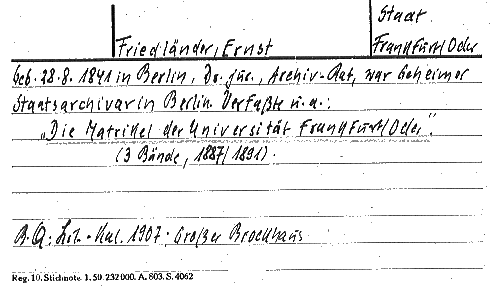 Stadt
Friedländer, Ernst
Frankfurt/Oder
Geb. 28.8.1841 in Berlin, Dr. jur., Archiv-Rat, war Geheimer
Staatsarchivar in Berlin. Verfaßte u.a.:
„Die Matrikel der Universität Frankfurt/Oder".
(3 Bände, 1887/1891).
B.Q: Lit.-Kal. 1907; Großer Brockhaus
Reg. 10. Stichnote. 1. 50. 232000. A. 803. S. 4062